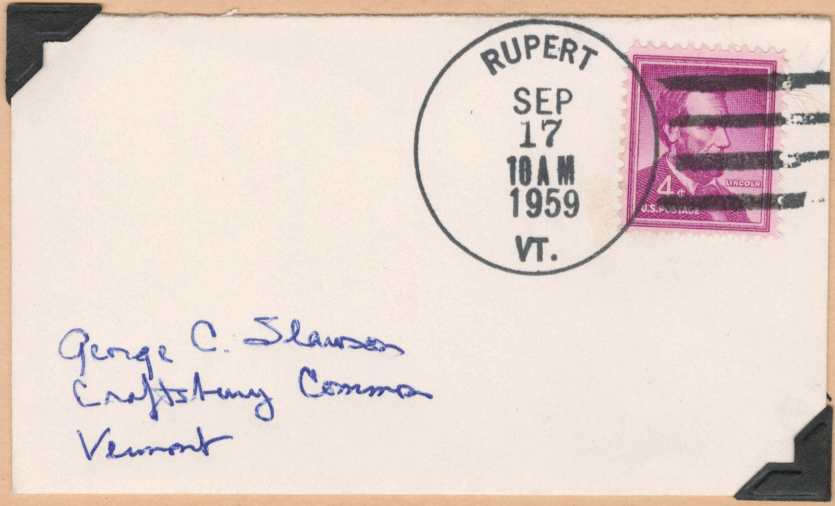 RUPERT
SEP
17
10 AM
1959
VT.
4¢
LINCOLN
U.S. POSTAGE
George C. Slawson
Craftsbury Common
Vermont